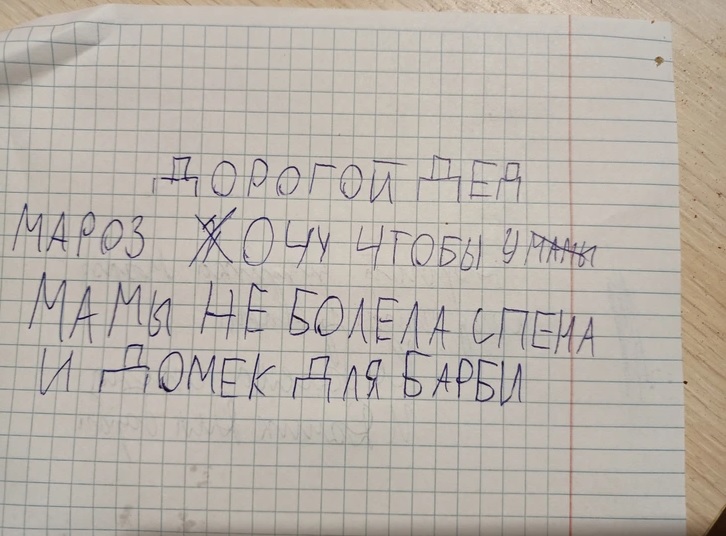 ДОРОГОЙ ДЕД
МАРОЗ ХОЧУ ЧТОБЫ У МАМЫ
МАМЫ НЕ БОЛЕЛА СПЕНА
И ДОМЕК ДЛЯ БАРБИ